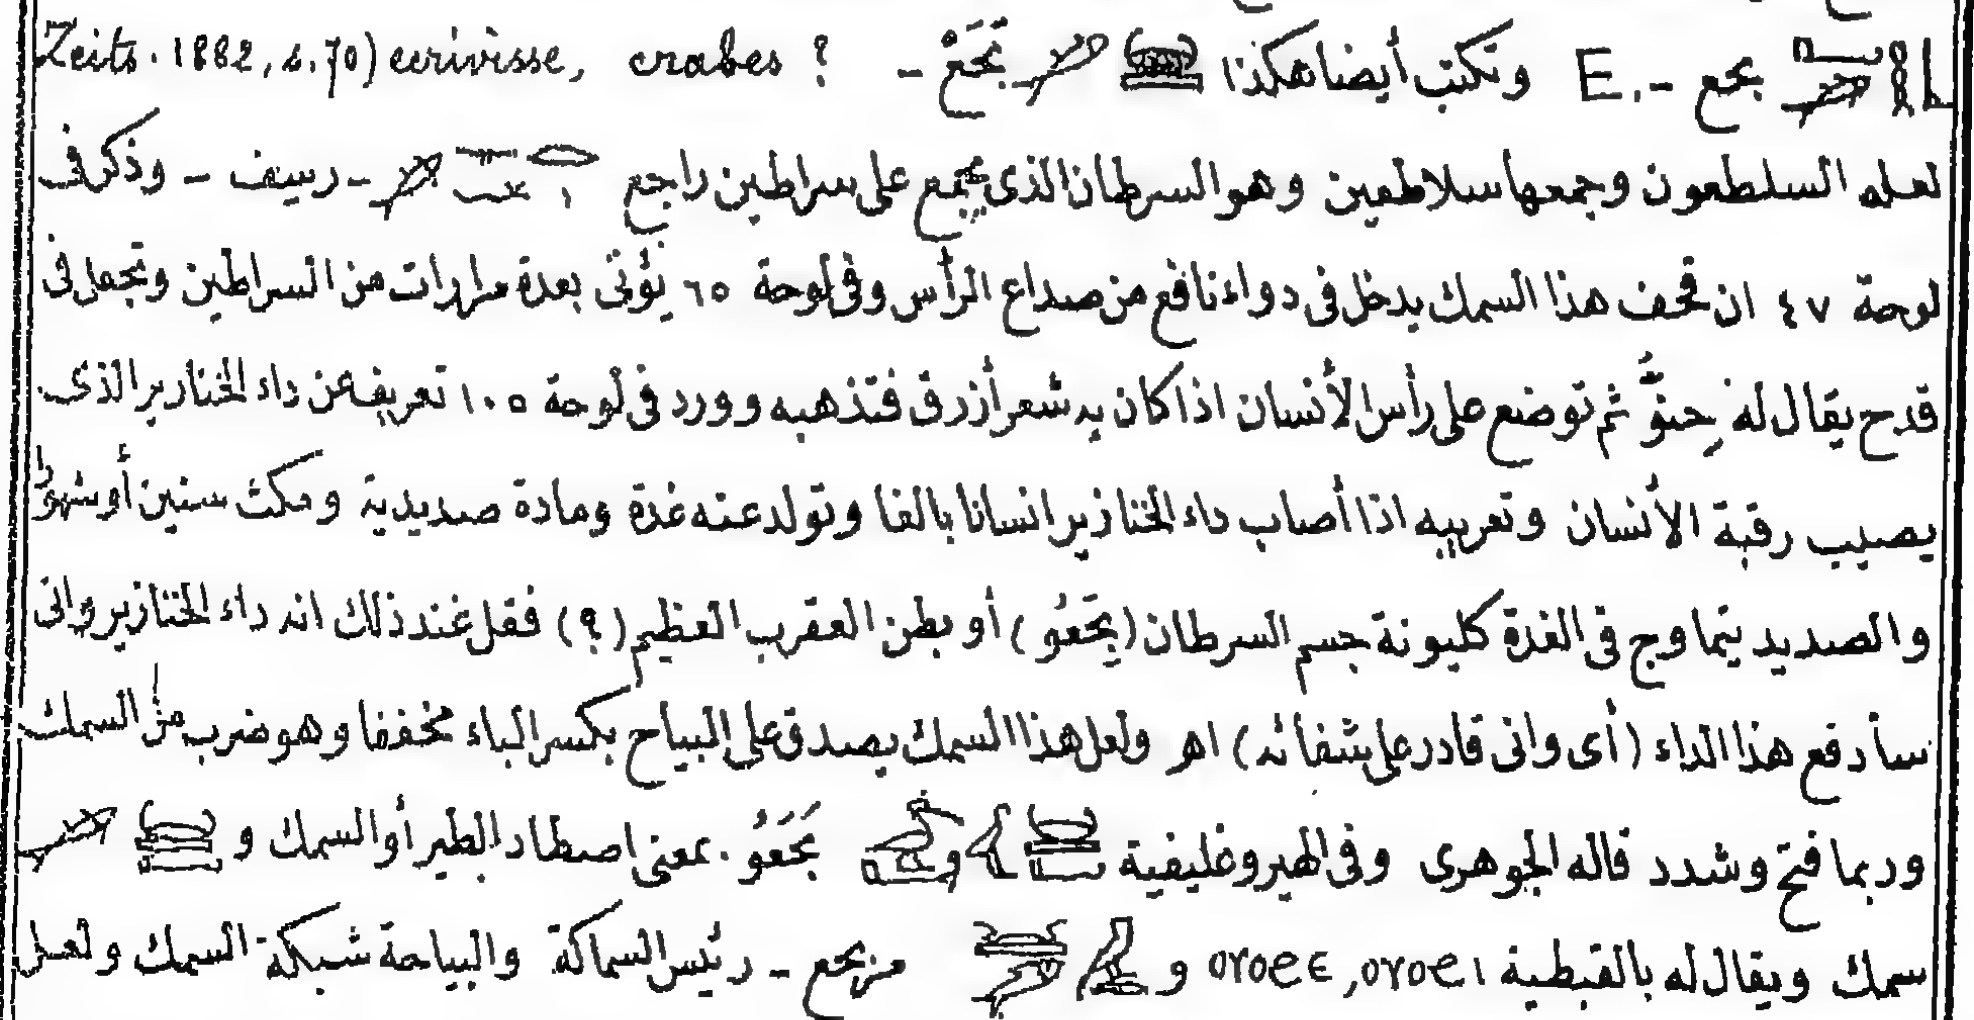 بحع -. E وتكتب أيضا هكذا بَحَعْ - Zeits. 1882, s. 70) ecrivisse, crabes ?
لعله السلطعون وجمعها سلاطعين وهو السرطان الذى يجمع على سراطين راجع - رسيف - وذكر فى
لوحة ٤٧ ان قحف هذا السمك يدخل فى دواء نافع من صداع الرأس وفى لوحة ٦٥ يؤتى بعدة مرارات من السراطين وتجعل فى
قدح يقال له حِنوُّ ثم توضع على رأس الأنسان اذا كان به شعر أزرق فتذهبه وورد فى لوحة ١٠٥ تعريف عن داء الخنازير الذى
يصيب رقبة الأنسان وتعريبه اذا أصاب داء الخنازير انسانا بالغا وتولد عنه غدة ومادة صديدية ومكث سنين أو شهورا
والصديد يتماوج فى الغدة كليونة جسم السرطان (بِحَعُو) أو بطن العقرب العظيم (؟) فقل عند ذلك انه داء الخنازير وانى
سأدفع هذا الداء (أى وانى قادر على شفائه) اهـ ولعل هذا السمك يصدق على البياح بكسر الباء مخففا وهو ضرب من السمك
وربما فتح وشدد قاله الجوهرى وفى الهيروغليفية و بَحَعُو. بمعنى اصطاد الطير أو السمك و
سمك ويقال له بالقبطية ⲟⲩⲟϩⲉ, ⲟⲩⲟϩⲓ و مربحع - رئيس السماكة والبياحة شبكة السمك ولعل